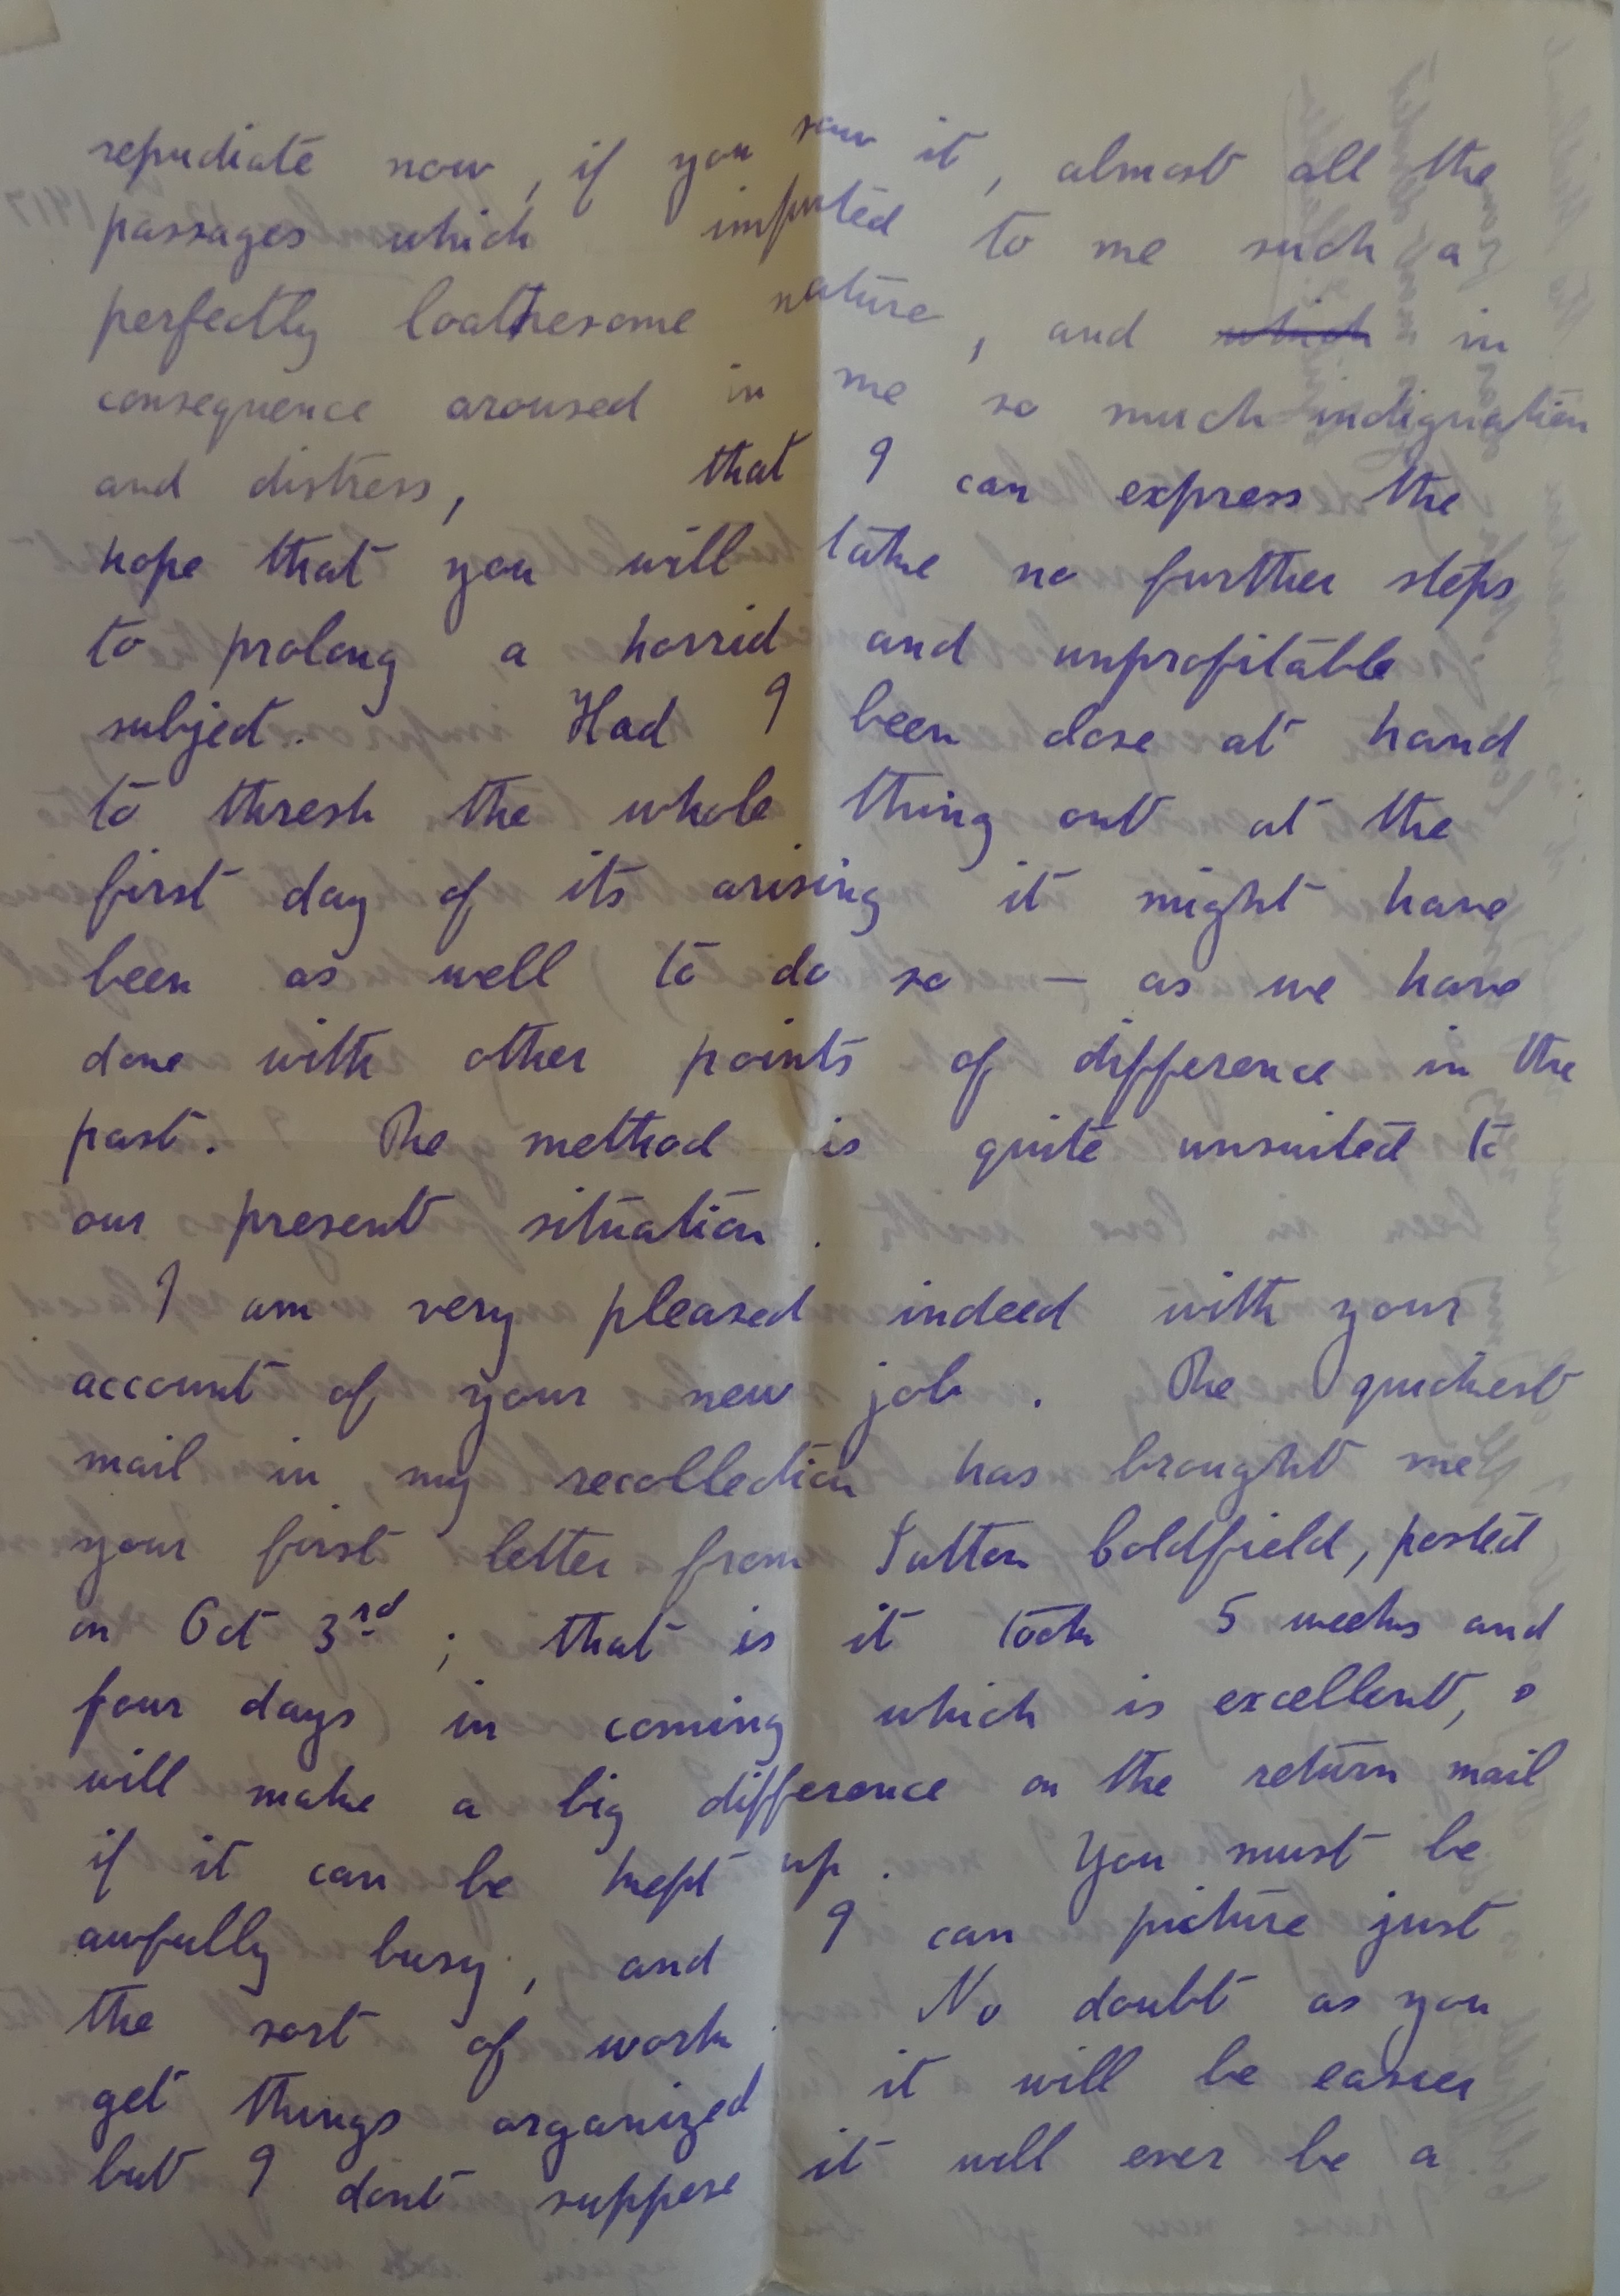 repudiate now, if you saw it, almost all the
passages which imputed to me such a
perfectly loathesome nature, and which in
consequence aroused in me so much indignation
and distress, that I can express the
hope that you will take no further steps
to prolong a horrid and unprofitable
subject. Had I been close at hand
to thresh the whole thing out at the
first day of its arising it might have
been as well to do so — as we have
done with other points of difference in the
past. The method is quite unsuited to
our present situation.
I am very pleased indeed with your
account of your new job. The quickest
mail in my recollection has brought me
your first letter from Sutton Coldfield, posted
on Oct 3rd; that is it took 5 weeks and
four days in coming which is excellent, &
will make a big difference on the return mail
if it can be kept up. You must be
awfully busy, and I can picture just
the sort of work. No doubt as you
get things organized it will be easier
but I dont suppose it will ever be a